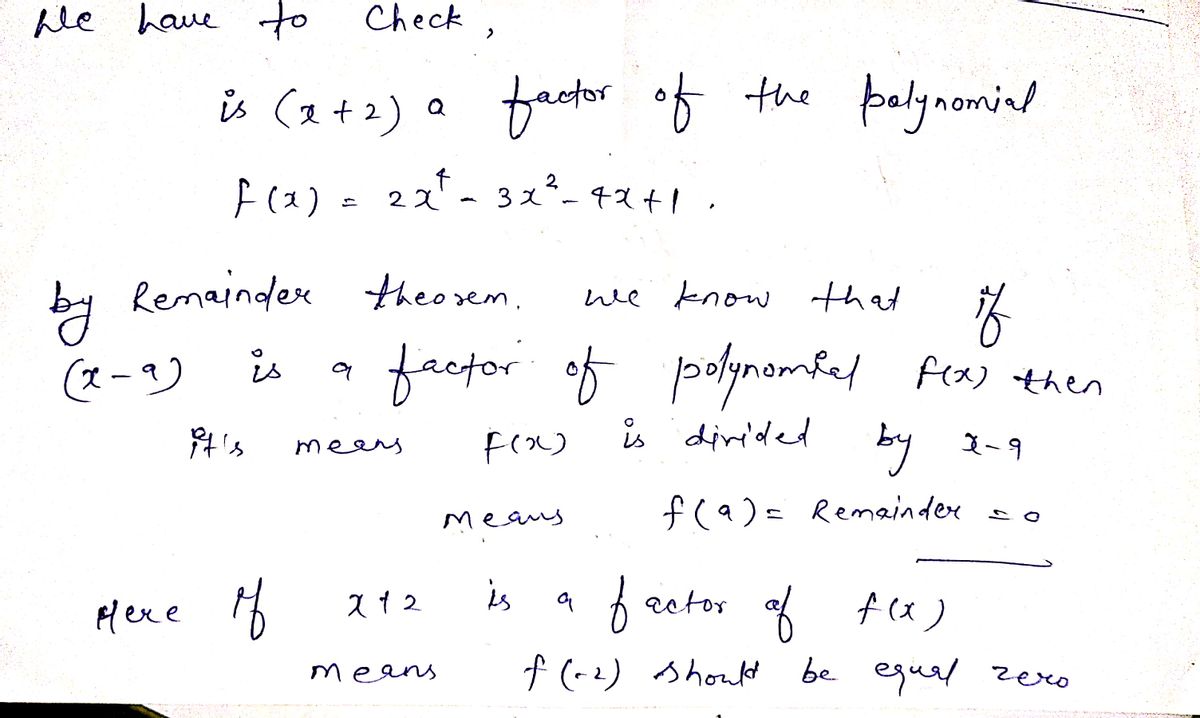 We have to Check,
is (x+2) a factor of the polynomial
f(x) = 2x⁴ - 3x² - 4x + 1.
by Remainder theorem. we know that if
(x-a) is a factor of polynomial f(x) then
it's means f(x) is divided by x-a
means f(a) = Remainder = 0
Here if x+2 is a factor of f(x)
means f(-2) should be equal zero